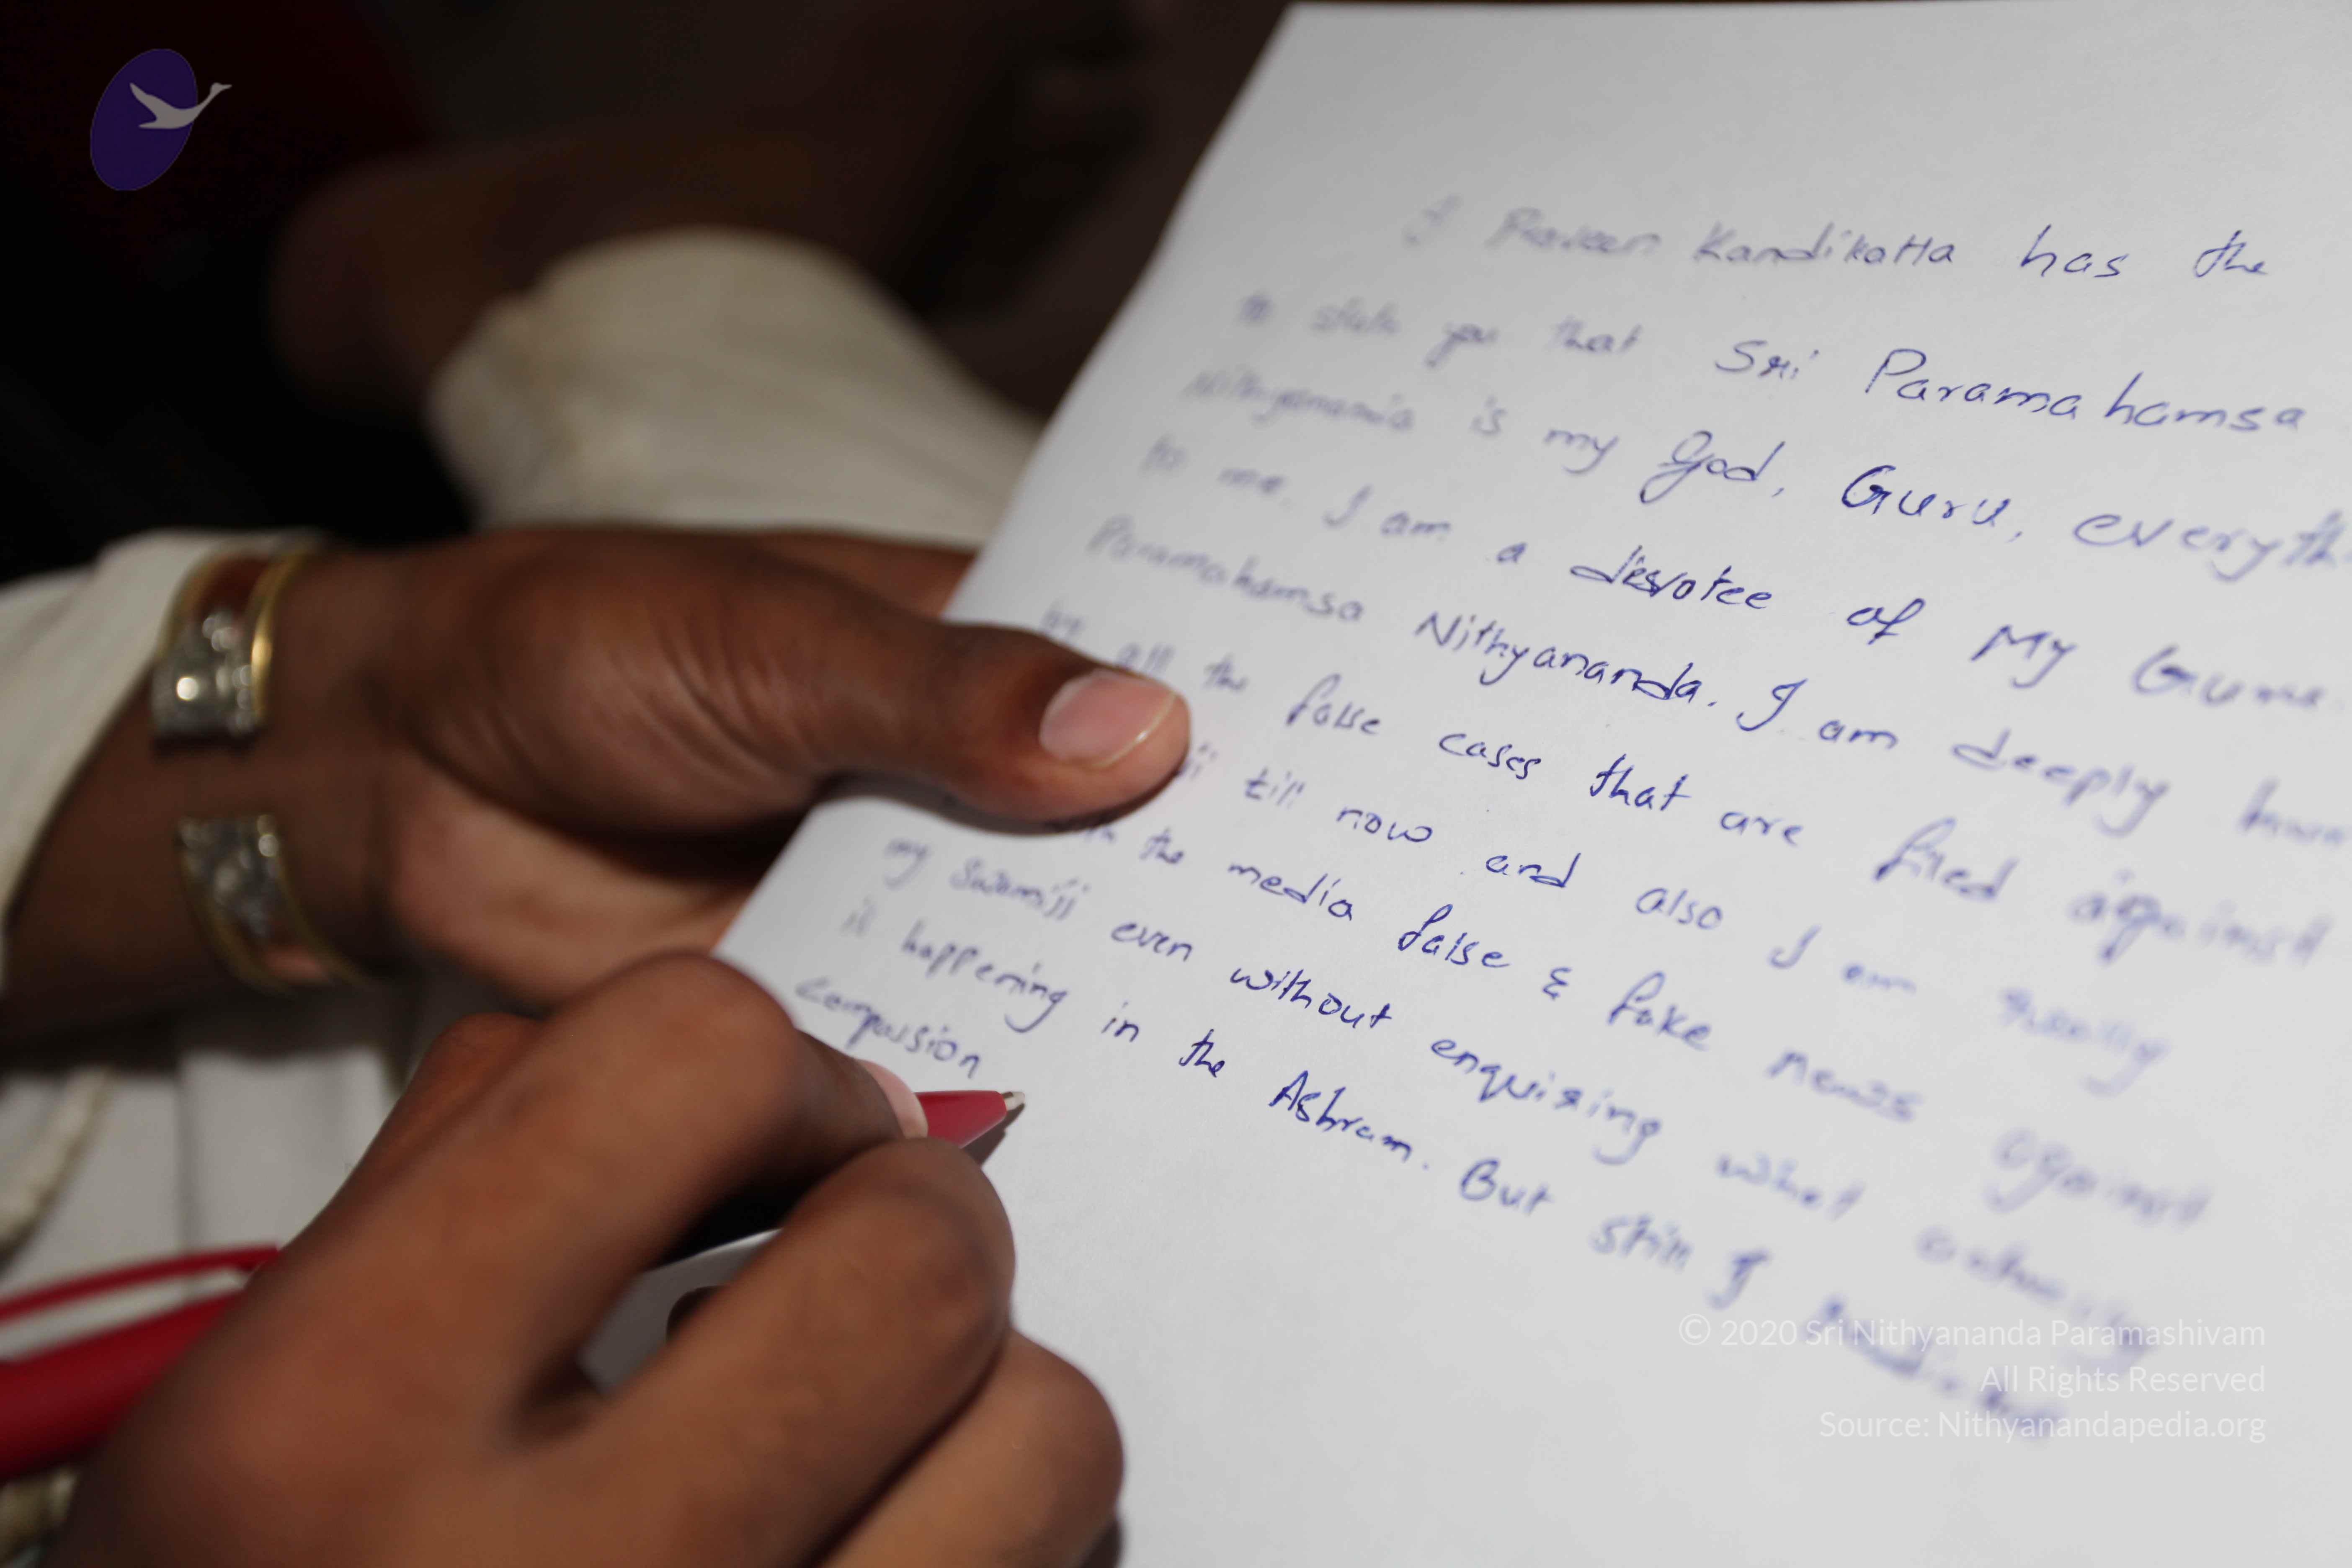 I Praveen Kandikatta has the
to state you that Sri Paramahamsa
Nithyananda is my God, Guru, everyth
to me. I am a devotee of My Guru
Paramahamsa Nithyananda. I am deeply
by all the false cases that are filed against
till now and also I am really
with the media false & fake news against
my Swamiji even without enquiring what actually
is happening in the Ashram. But still I
compassion
© 2020 Sri Nithyananda Paramashivam
All Rights Reserved
Source: Nithyanandapedia.org